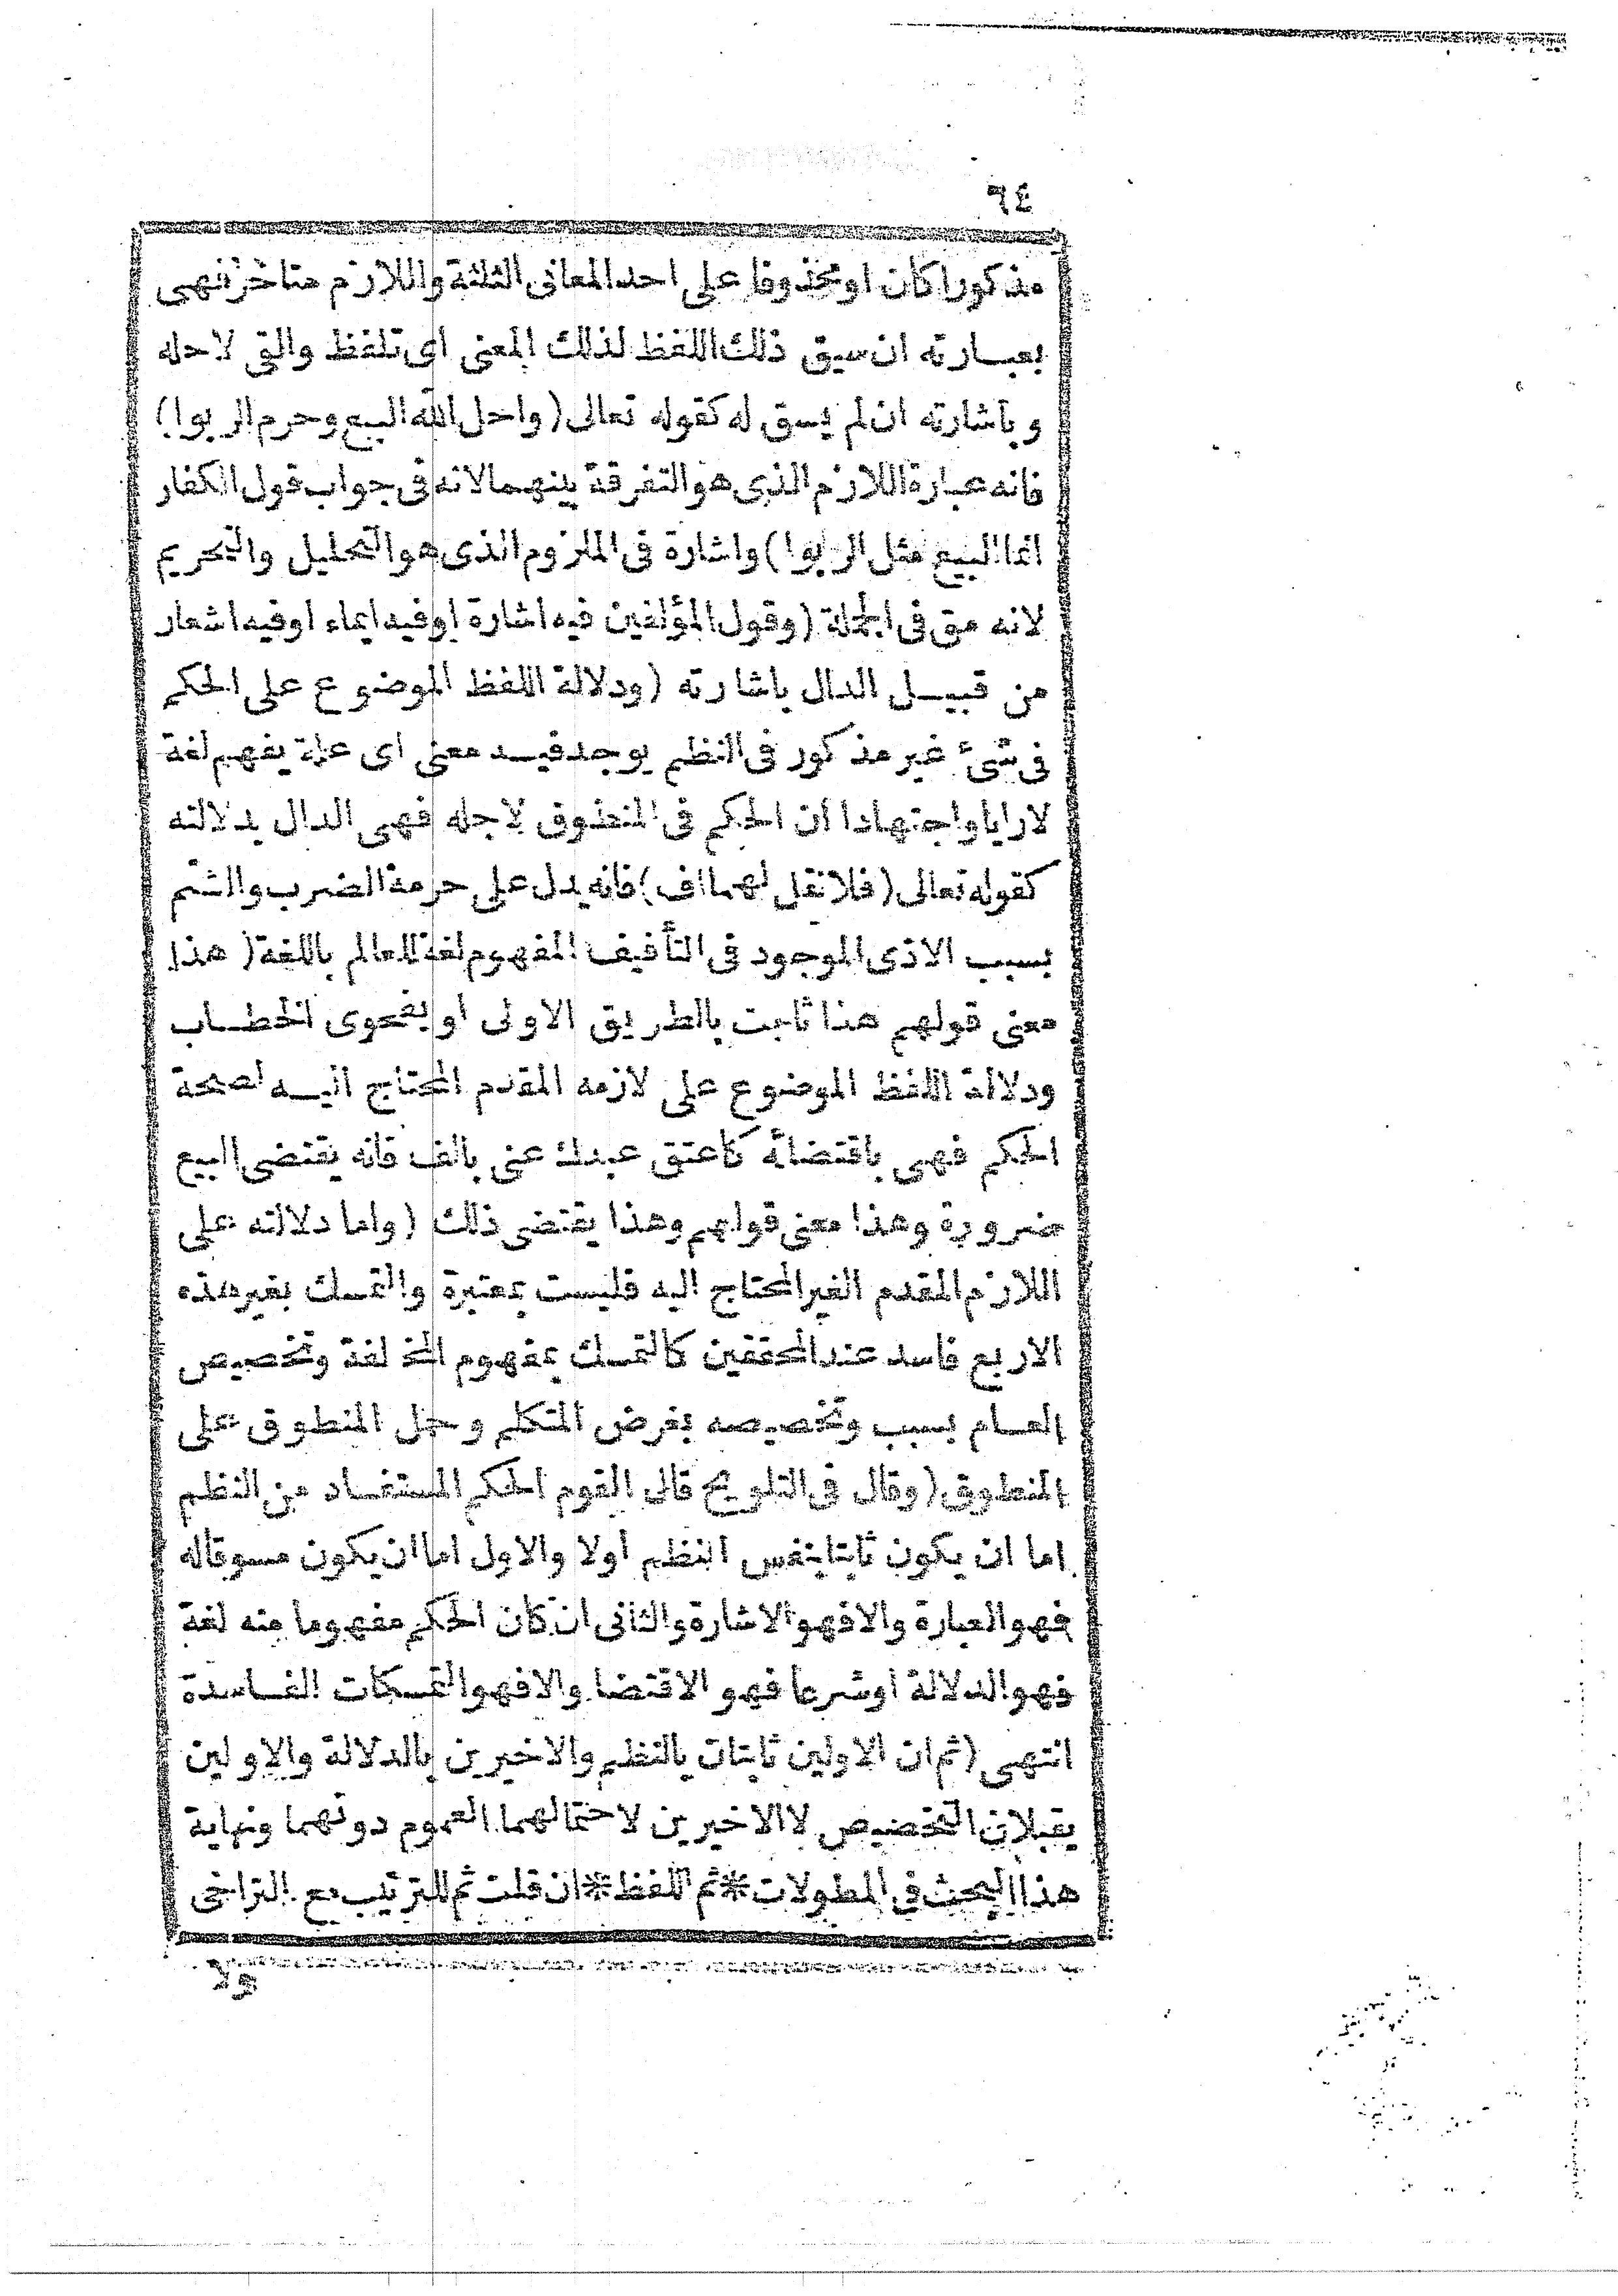 ٩٤
مذكورا كان او محذوفا على احد المعانى الثلثة واللازم متأخر فهى
بعبارته ان سيق ذلك اللفظ لذلك المعنى اى تلفظ والقى لاجله
وباشارته ان لم يسق له كقوله تعالى (واحل الله البيع وحرم الربوا)
فانه عبارة اللازم الذى هو التفرقة بينهما لانه فى جواب قول الكفار
انما البيع مثل الربوا) واشارة فى الملزوم الذى هو التحليل والتحريم
لانه مق فى الجملة (وقول المؤلفين فيه اشارة او فيه ايماء او فيه اشعار
من قبيل الدال باشارته (ودلالة اللفظ الموضوع على الحكم
فى شئ غير مذكور فى النظم يوجد فيه معنى اى علة يفهم لغة
لارايا واجتهادا ان الحكم فى المنطوق لاجله فهى الدال بدلالته
كقوله تعالى (فلا تقل لهما اف) فانه يدل على حرمة الضرب والشتم
بسبب الاذى الموجود فى التأفيف المفهوم لغة للعالم باللغة (هذا
معنى قولهم هذا ثابت بالطريق الاولى او بفحوى الخطاب
ودلالة اللفظ الموضوع على لازمه المقدم المحتاج اليه لصحة
الحكم فهى باقتضائه كاعتق عبدك عنى بالف فانه يقتضى البيع
ضرورة وهذا معنى قولهم وهذا يقتضى ذلك (واما دلالته على
اللازم المقدم الغير المحتاج اليه فليست بمعتبرة والتمسك بغير هذه
الاربع فاسد عند المحققين كالتمسك بمفهوم المخالفة وتخصيص
العام بسبب وتخصيصه بغرض المتكلم وحمل المنطوق على
المنطوق (وقال فى التلويح قال القوم الحكم المستفاد من النظم
اما ان يكون ثابتا بنفس النظم اولا والاول اما ان يكون مسوقاله
فهو العبارة والافهو الاشارة والثانى ان كان الحكم مفهوما منه لغة
فهو الدلالة او شرعا فهو الاقتضا والا فهو التمسكات الفاسدة
انتهى (ثم ان الاولين ثابتان بالنظم والاخيرين بالدلالة والاولين
يقبلان التخصيص لا الاخيرين لاحتمالهما العموم دونهما ونهاية
هذا البحث فى المطولات * ثم اللفظ * ان قلت ثم للترتيب مع التراخى
ولا